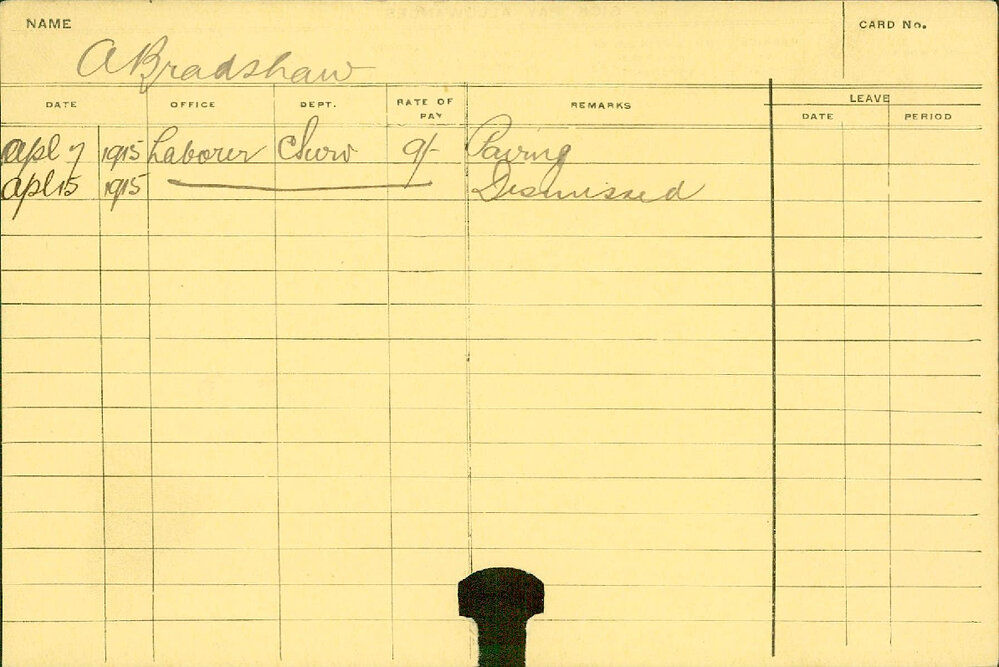 NAME
CARD No.
A Bradshaw
DATE OFFICE DEPT. RATE OF PAY REMARKS LEAVE
DATE PERIOD
Apl 7 1915 Laborer 9/- Paving
Apl 15 1915 Dismissed